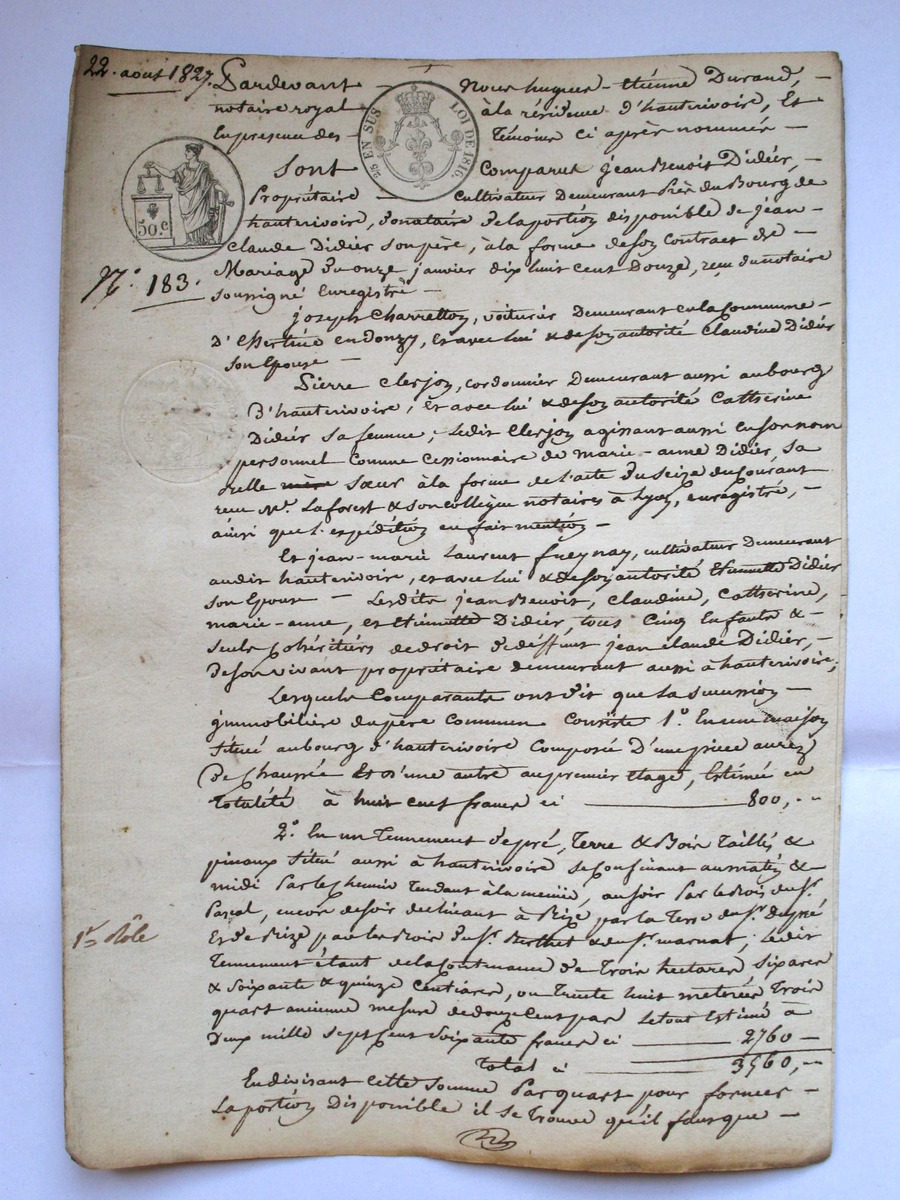 22. aout 1827.
Pardevant — Nous hugues-étienne Durand, —
notaire royal à la résidence d'hauterivoire, Et
En presence des — Témoins ci après nommés —
25 EN SUS LOI DE 1816.
50.c
Sont Comparus jean Benoit Didier, —
Propriétaire — Cultivateur Demeurant Du Bourg de
hauterivoire, Donataire De la portion disponible de jean-
claude Didier son père, à la forme de son Contract de —
Mariage Du onze janvier dix huit cent Douze, reçu du notaire
N.o 183.
soussigné Enregistré —
joseph Charretton, voiturier Demeurant en la Commune —
D' en Donzy, et avec lui & de son autorité Claudine Didier
son Epouse —
Pierre Clerjon, cordonnier Demeurant aussi au bourg
D'hauterivoire, et avec lui & de son autorité Catherine
Didier sa femme, Ledit Clerjon agissant aussi en son nom
personnel Comme Cessionnaire de marie-anne Didier, sa
belle mère sœur à la forme de l'acte Du seize du Courant
reçu M.e Laforest & son collègue notaires à Lyon, enregistré, —
ainsi que l'expédition en fait mention —
Et jean-marie Laurent freynay, cultivateur Demeurant
audit hauterivoire, et avec lui & de son autorité Etiennette Didier
son Epouse — Lesdits jean Benoit, Claudine, Catherine,
marie-anne, et Etiennette Didier, tous Cinq Enfants & —
seuls cohéritiers de droit De déffunt jean Claude Didier, —
De son vivant propriétaire demeurant aussi à hauterivoire;
Lesquels Comparants ont dit que la succession —
jmmobilière du père Commun Consiste 1.o En une maison
située au bourg d'hauterivoire Composée D'une pièce au rez
De Chaussée Et d'une autre au premier Etage, Estimée en
Totalité à huit cent francs ci — 800, —
2.o En un Tennement De pré, Terre & Bois Taillis &
pinaux situé aussi à hauterivoire se Confinant au matin &
midi Par le Chemin Tendant à la , au soir Par le Bois du S.r
Pascal, encore de soir declinant à Bize par la Terre du S.r
Et de Bize par les Bois Du S.r Berthet & du S.r marnat; Ledit
1.er Rôle
Tennement étant de la Contenance de Trois hectares Six ares
& soixante & quinze Centiares, ou Trente huit Trois
quart ancienne mesure de douze Cent pas Le tout Estimé à
Deux mille sept cent soixante francs ci — 2760 —
Total ci — 3560, —
En divisant cette somme Par quart pour former —
La portion Disponible il se Trouve qu'il faut que —